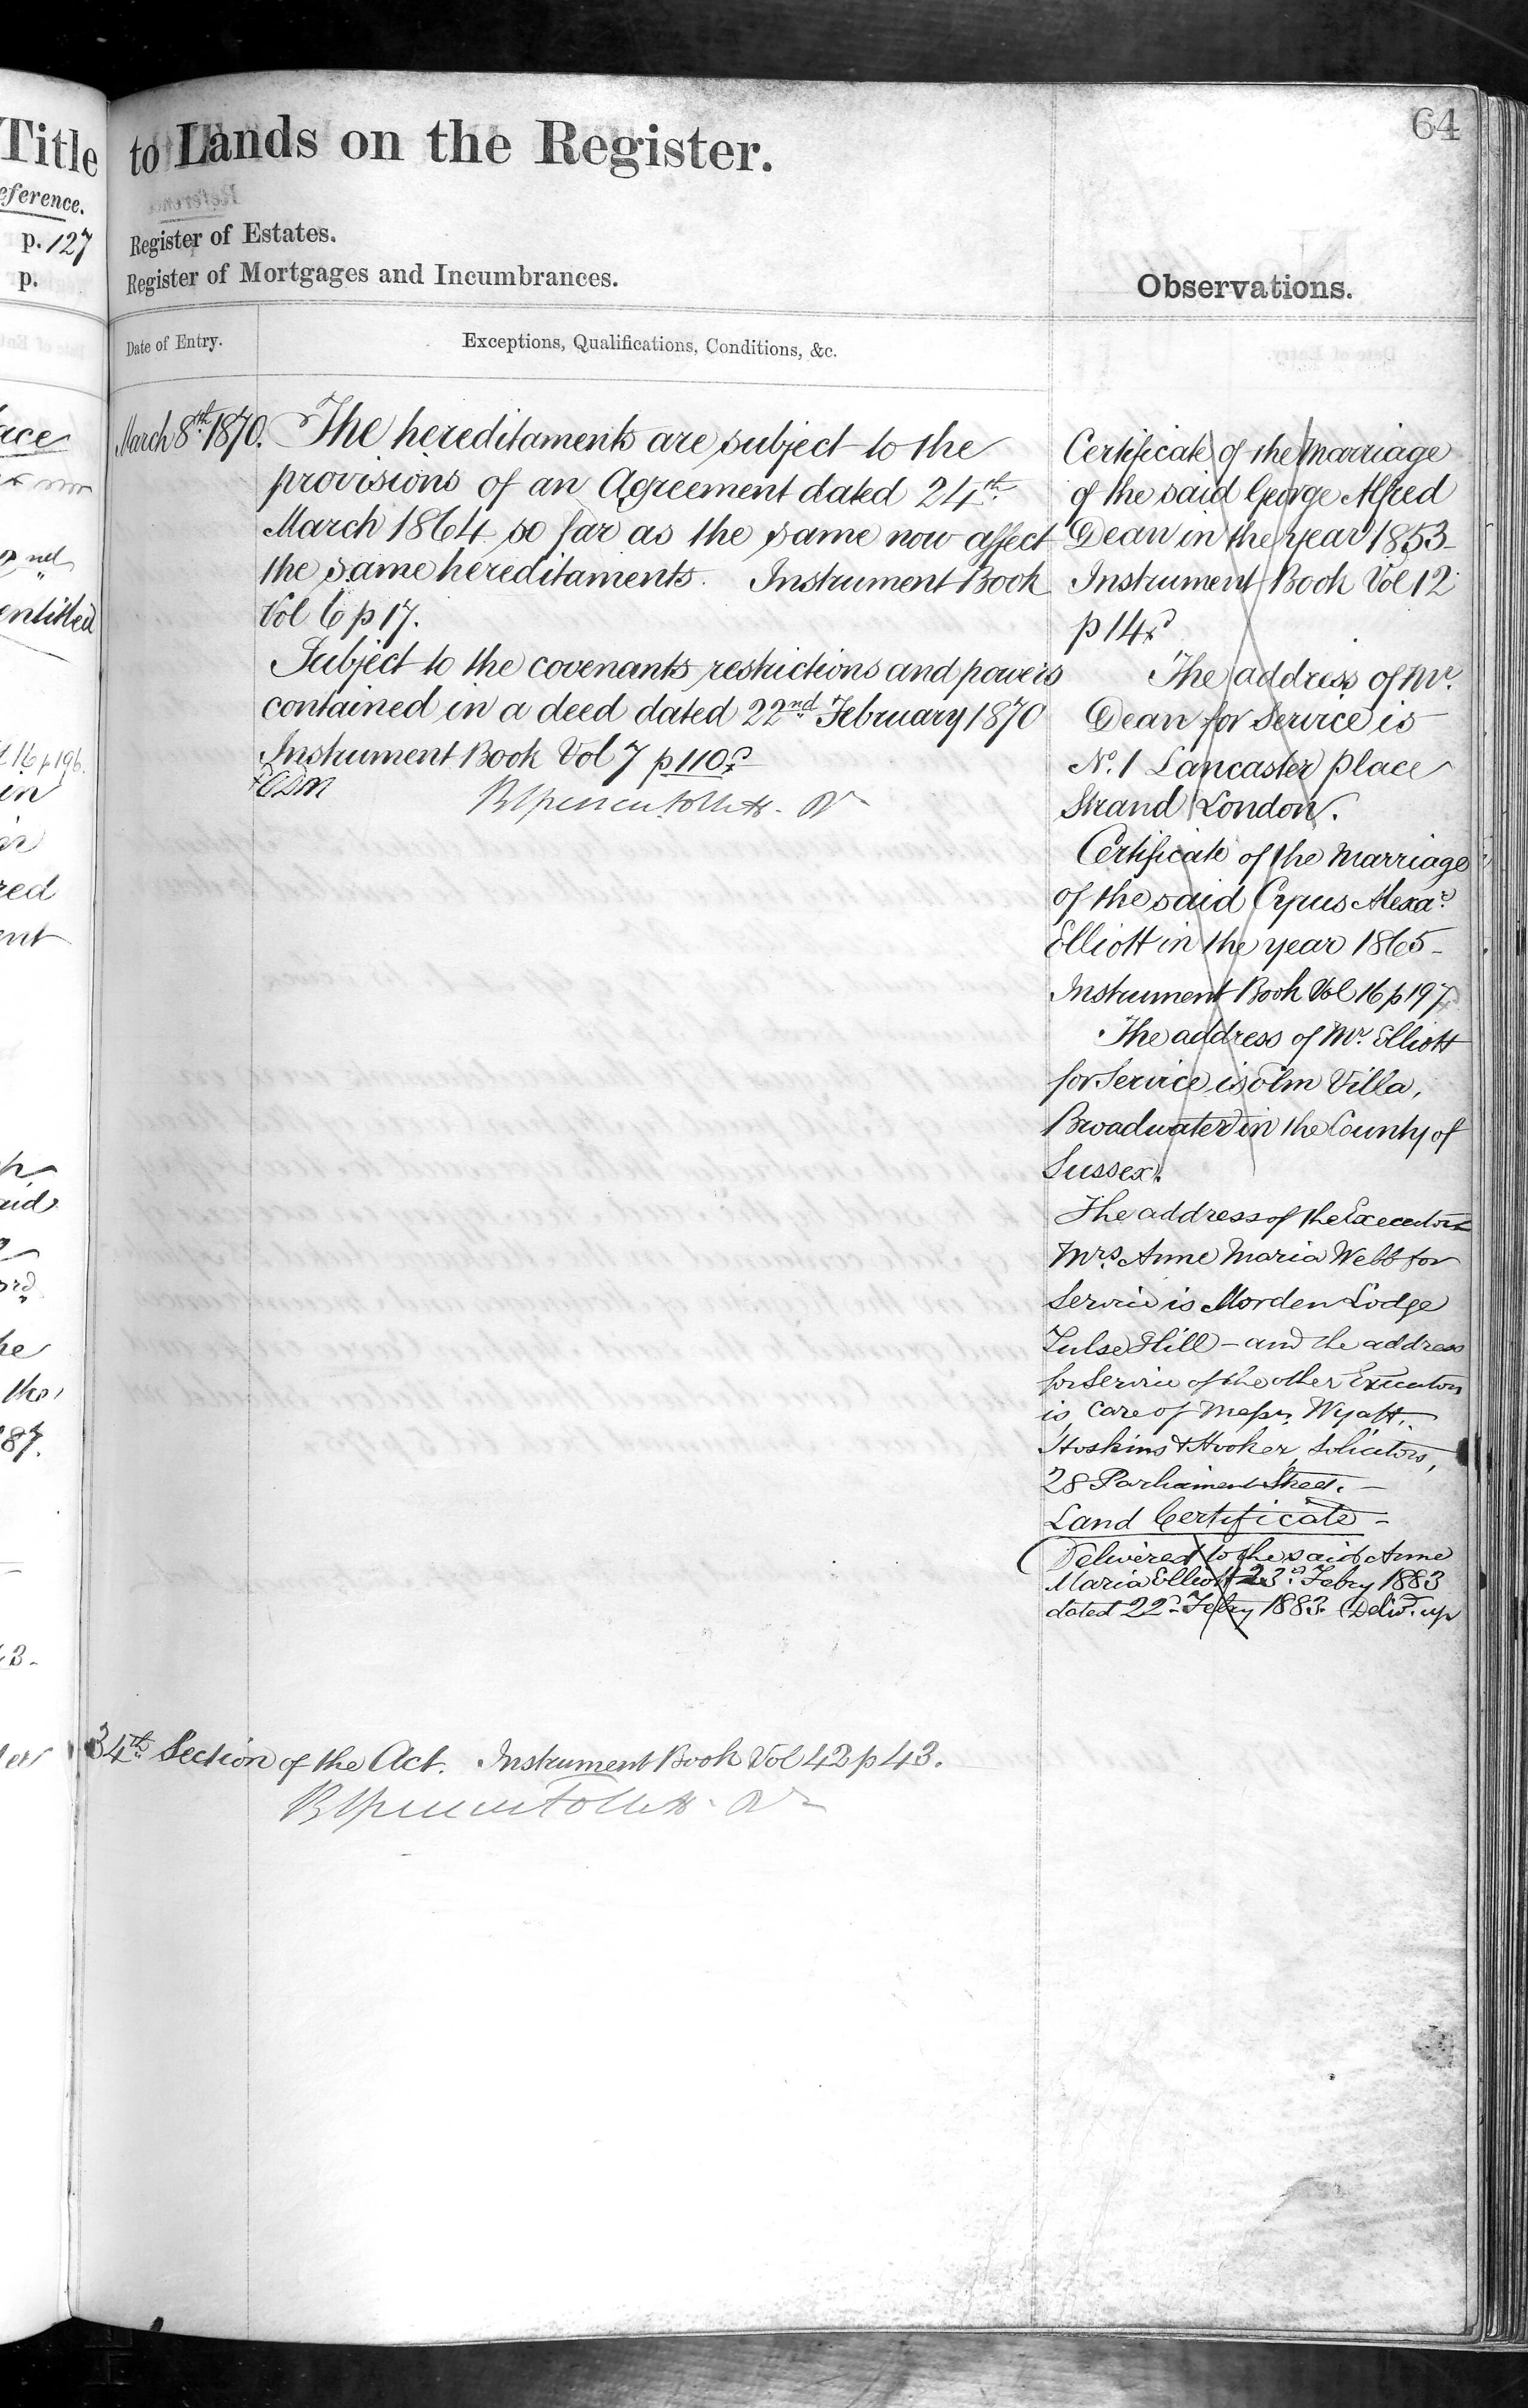 64
Title to Lands on the Register.
eference.
p. 127 Register of Estates.
p. Register of Mortgages and Incumbrances.
Observations.
Date of Entry.
Exceptions, Qualifications, Conditions, &c.
March 8th 1870. The hereditaments are subject to the
provisions of an Agreement dated 24th
March 1864 so far as the same now affect
the same hereditaments. Instrument Book
Vol 6 p 17.
Subject to the covenants restrictions and powers
contained in a deed dated 22nd February 1870
Instrument Book Vol 7 p 110
Certificate of the Marriage
of the said George Alfred
Dean in the year 1853
Instrument Book Vol 12
p 14
The address of Mr.
Dean for Service is
No. 1 Lancaster place
Strand London.
Certificate of the Marriage
of the said Cyrus Alexar.
Elliott in the year 1865
Instrument Book Vol 16 p 197
The address of Mr. Elliott
for Service is Elm Villa,
Broadwater in the County of
Sussex.
The address of the Executors
Mrs. Anne Maria Webb for
Service is Morden Lodge
Tulse Hill - and the address
for Service of the other Executors
is, Care of Messrs. Wyatt,
Hoskins & Hooker, Solicitors,
28 Parliament Street. -
Land Certificate -
(Delivered to the said Anne
Maria Elliott 23d. Febry 1883
dated 22d. Febry 1883. (Delivd. up
34th Section of the Act. Instrument Book Vol 42 p 43.